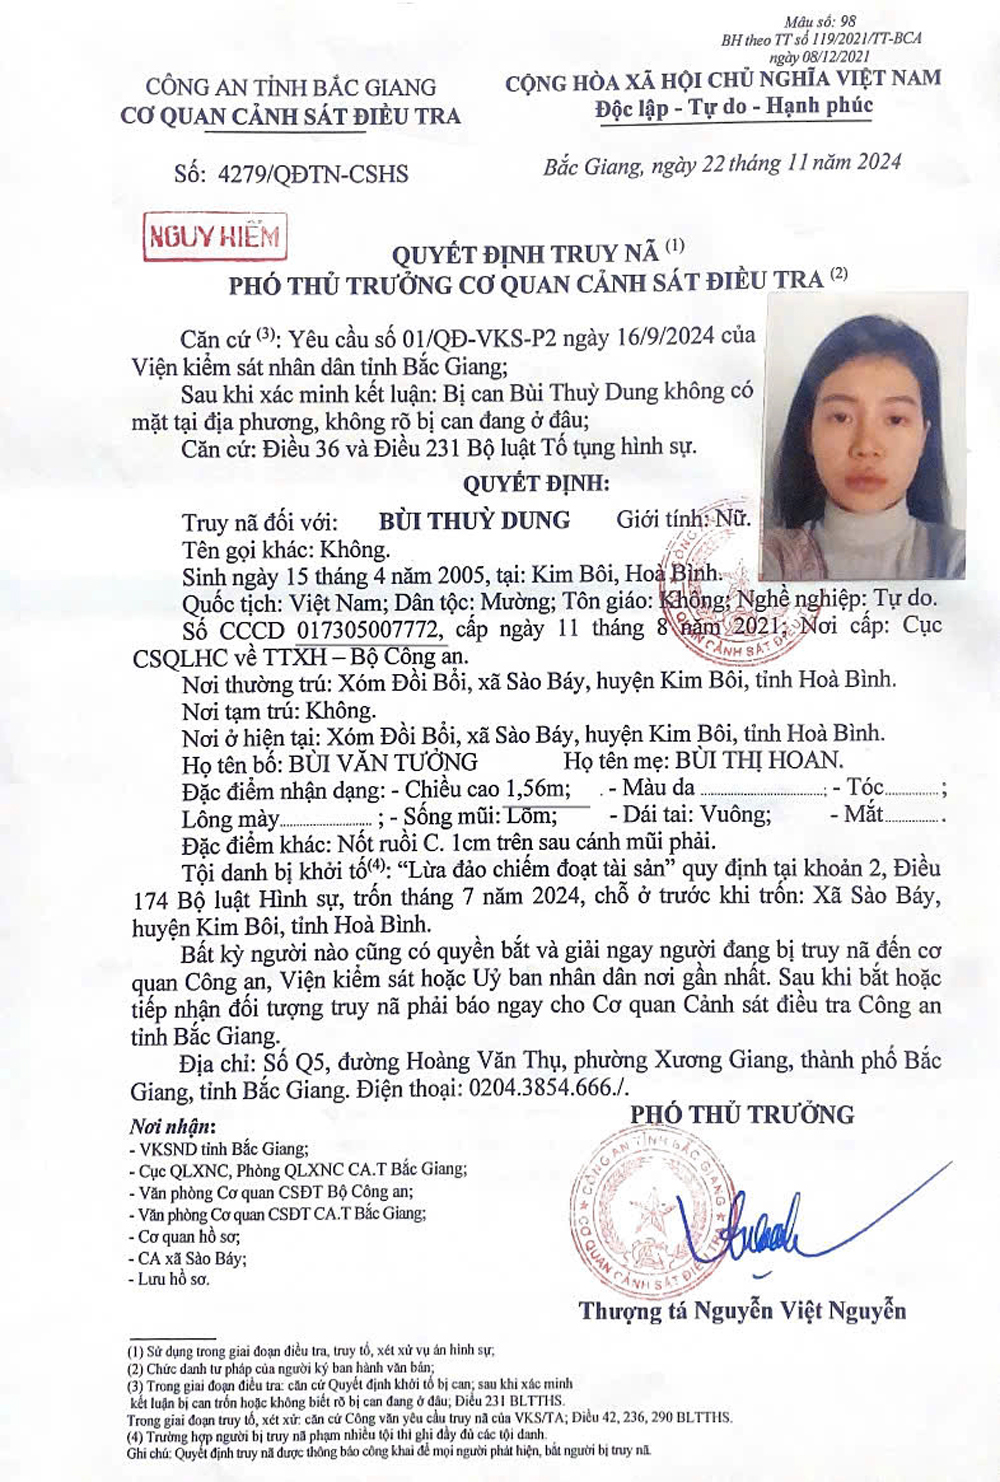 Mẫu số: 98
BH theo TT số 119/2021/TT-BCA
ngày 08/12/2021
CÔNG AN TỈNH BẮC GIANG
CƠ QUAN CẢNH SÁT ĐIỀU TRA
CỘNG HÒA XÃ HỘI CHỦ NGHĨA VIỆT NAM
Độc lập - Tự do - Hạnh phúc
Số: 4279/QĐTN-CSHS
Bắc Giang, ngày 22 tháng 11 năm 2024
NGUY HIỂM
QUYẾT ĐỊNH TRUY NÃ (1)
PHÓ THỦ TRƯỞNG CƠ QUAN CẢNH SÁT ĐIỀU TRA (2)
Căn cứ (3): Yêu cầu số 01/QĐ-VKS-P2 ngày 16/9/2024 của
Viện kiểm sát nhân dân tỉnh Bắc Giang;
Sau khi xác minh kết luận: Bị can Bùi Thuỳ Dung không có
mặt tại địa phương, không rõ bị can đang ở đâu;
Căn cứ: Điều 36 và Điều 231 Bộ luật Tố tụng hình sự.
QUYẾT ĐỊNH:
Truy nã đối với: BÙI THUỲ DUNG Giới tính: Nữ.
Tên gọi khác: Không.
Sinh ngày 15 tháng 4 năm 2005, tại: Kim Bôi, Hoà Bình.
Quốc tịch: Việt Nam; Dân tộc: Mường; Tôn giáo: Không; Nghề nghiệp: Tự do.
Số CCCD 017305007772, cấp ngày 11 tháng 8 năm 2021; Nơi cấp: Cục
CSQLHC về TTXH – Bộ Công an.
Nơi thường trú: Xóm Đồi Bổi, xã Sào Báy, huyện Kim Bôi, tỉnh Hoà Bình.
Nơi tạm trú: Không.
Nơi ở hiện tại: Xóm Đồi Bổi, xã Sào Báy, huyện Kim Bôi, tỉnh Hoà Bình.
Họ tên bố: BÙI VĂN TƯỞNG Họ tên mẹ: BÙI THỊ HOAN.
Đặc điểm nhận dạng: - Chiều cao 1,56m; - Màu da ....................; - Tóc............;
Lông mày.................... ; - Sống mũi: Lõm; - Dái tai: Vuông; - Mắt............ .
Đặc điểm khác: Nốt ruồi C. 1cm trên sau cánh mũi phải.
Tội danh bị khởi tố(4): “Lừa đảo chiếm đoạt tài sản” quy định tại khoản 2, Điều
174 Bộ luật Hình sự, trốn tháng 7 năm 2024, chỗ ở trước khi trốn: Xã Sào Báy,
huyện Kim Bôi, tỉnh Hoà Bình.
Bất kỳ người nào cũng có quyền bắt và giải ngay người đang bị truy nã đến cơ
quan Công an, Viện kiểm sát hoặc Uỷ ban nhân dân nơi gần nhất. Sau khi bắt hoặc
tiếp nhận đối tượng truy nã phải báo ngay cho Cơ quan Cảnh sát điều tra Công an
tỉnh Bắc Giang.
Địa chỉ: Số Q5, đường Hoàng Văn Thụ, phường Xương Giang, thành phố Bắc
Giang, tỉnh Bắc Giang. Điện thoại: 0204.3854.666./.
PHÓ THỦ TRƯỞNG
Nơi nhận:
- VKSND tỉnh Bắc Giang;
- Cục QLXNC, Phòng QLXNC CA.T Bắc Giang;
- Văn phòng Cơ quan CSĐT Bộ Công an;
- Văn phòng Cơ quan CSĐT CA.T Bắc Giang;
- Cơ quan hồ sơ;
- CA xã Sào Báy;
- Lưu hồ sơ.
CÔNG AN TỈNH BẮC GIANG
CƠ QUAN CẢNH SÁT ĐIỀU TRA
Thượng tá Nguyễn Việt Nguyễn
(1) Sử dụng trong giai đoạn điều tra, truy tố, xét xử vụ án hình sự;
(2) Chức danh tư pháp của người ký ban hành văn bản;
(3) Trong giai đoạn điều tra: căn cứ Quyết định khởi tố bị can; sau khi xác minh
kết luận bị can trốn hoặc không biết rõ bị can đang ở đâu; Điều 231 BLTTHS.
Trong giai đoạn truy tố, xét xử: căn cứ Công văn yêu cầu truy nã của VKS/TA; Điều 42, 236, 290 BLTTHS.
(4) Trường hợp người bị truy nã phạm nhiều tội thì ghi đầy đủ các tội danh.
Ghi chú: Quyết định truy nã được thông báo công khai để mọi người phát hiện, bắt người bị truy nã.